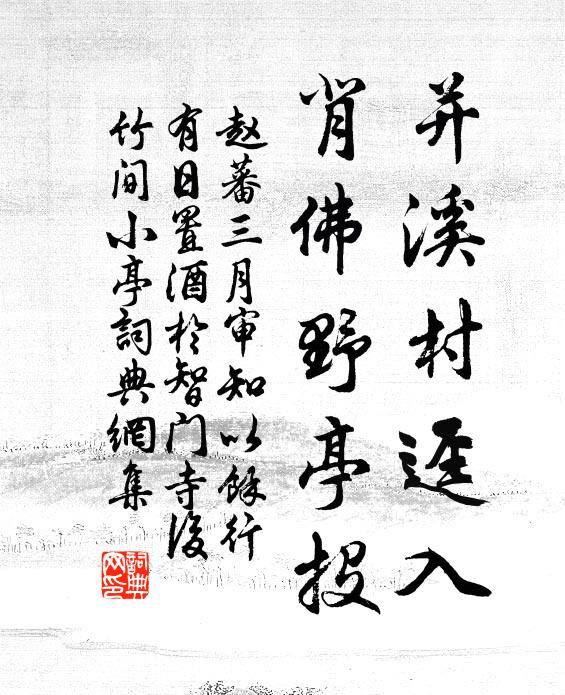 并溪村迳入
背佛野亭投
赵蕃三月审知以余行
有日置酒於智门寺后
竹间小亭詞典網集